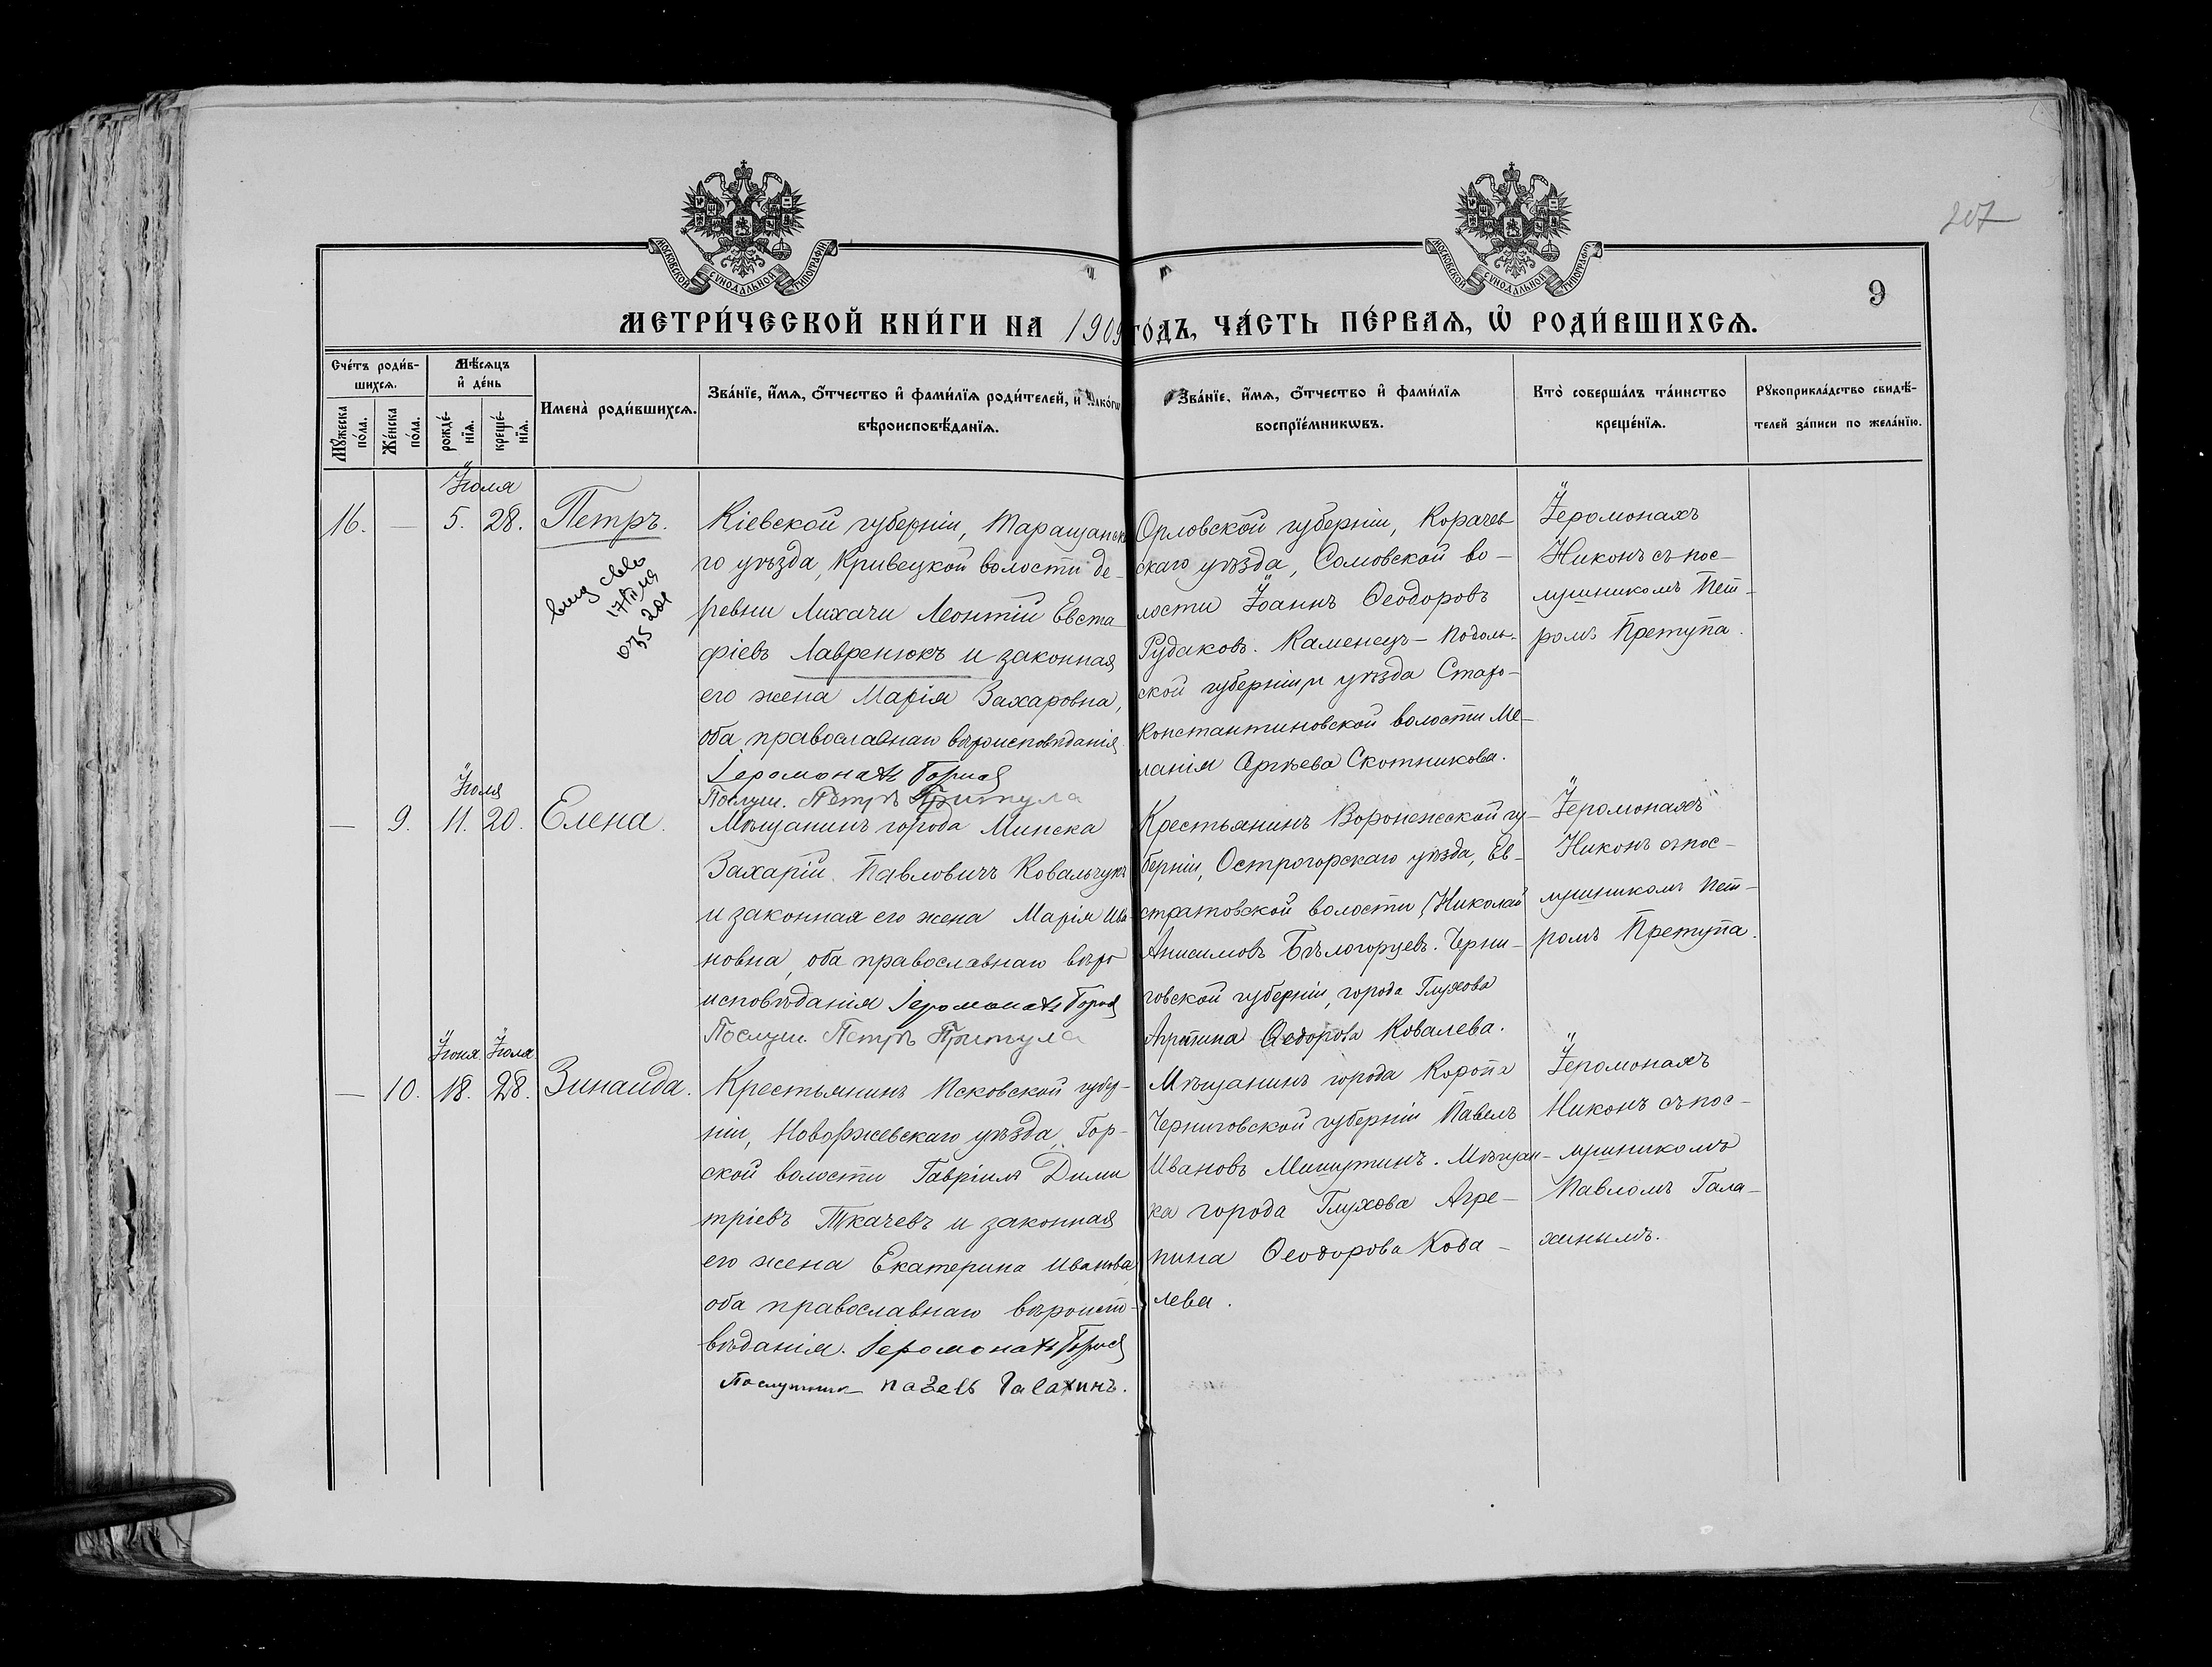 207
9
МОСКОВСКОЙ СѴНОДАЛЬНОЙ ТИПОГРАФІИ
МОСКОВСКОЙ СѴНОДАЛЬНОЙ ТИПОГРАФІИ
МЕТРИ́ЧЕСКОЙ КНИ́ГИ НА 1909 ГО́ДЪ, ЧА́СТЬ ПЕ́РВАѦ, Ѡ РОДИ́ВШИХСѦ.
Счетъ роди́в-
шихсѧ.
Мꙋжеска по́ла.
Же́нска по́ла.
Мѣ́сѧцъ
и де́нь
рожде́-
нїѧ.
креще́-
нїѧ.
Имена̀ роди́вшихсѧ.
Зва́нїе, и́мѧ, о́тчество и фами́лїѧ роди́телей, и како́гѡ
вѣроисповѣ́данїѧ.
Зва́нїе, и́мѧ, о́тчество и фами́лїѧ
воспрїе́мникѡвъ.
Кто̀ соверша́лъ та́инство
креще́нїѧ.
Рꙋкоприкла́дство свидѣ́-
телей за́писи по жела́нїю.
Іюля
16. — 5. 28. Петръ.
Кіевской губерніи, Таращанска
го уѣзда, Кривецкой волости де-
ревни Лихачи Леонтій Евста
фіевъ Лавренюкъ и законная
его жена Марія Захаровна,
оба православнаго вѣроисповѣданія
Іеромонахъ
Послуш. Петръ Притула
Орловской губерніи, Корачев
скаго уѣзда, Сомовской во-
лости Іоаннъ Ѳеодоровъ
Рудаковъ. Каменецъ-Подоль-
ской губерніи, и уѣзда Старо-
константиновской волости Ме-
ланія Сергѣева Скотникова.
Іеромонахъ
Никонъ съ пос-
лушникомъ Пет-
ромъ Претула.
Іюля
— 9. 11. 20. Елена.
Мѣщанинъ города Минска
Захарій Павловичъ Ковальчукъ
и законная его жена Марія Ива
новна, оба православнаго вѣро
исповѣданія Іеромонахъ
Послуш. Петръ Притула
Крестьянинъ Воронежской гу-
берніи, Острогорскаго уѣзда, Ев-
стратовской волости, Николай
Анисимовъ Бѣлогорцевъ. Черни-
говской губерніи, города Глухова
Агрипина Ѳеодорова Ковалева.
Іеромонахъ
Никонъ съ пос-
лушникомъ Пет-
ромъ Претула.
Іюня Іюля
— 10. 18. 28. Зинаида.
Крестьянинъ Псковской губер-
ніи, Новоржевскаго уѣзда, Гор-
ской волости Гавріилъ Дими
тріевъ Ткачевъ и законная
его жена Екатерина Иванова
оба православнаго вѣроиспо-
вѣданія. Іеромонахъ
Послушникъ Павелъ Галахинъ.
Мѣщанинъ города Коропа
Черниговской губерніи Павелъ
Ивановъ Мишутинъ. Мѣщан-
ка города Глухова Агре-
пина Ѳеодорова Кова-
лева.
Іеромонахъ
Никонъ съ пос-
лушникомъ
Павломъ Гала-
хинымъ.